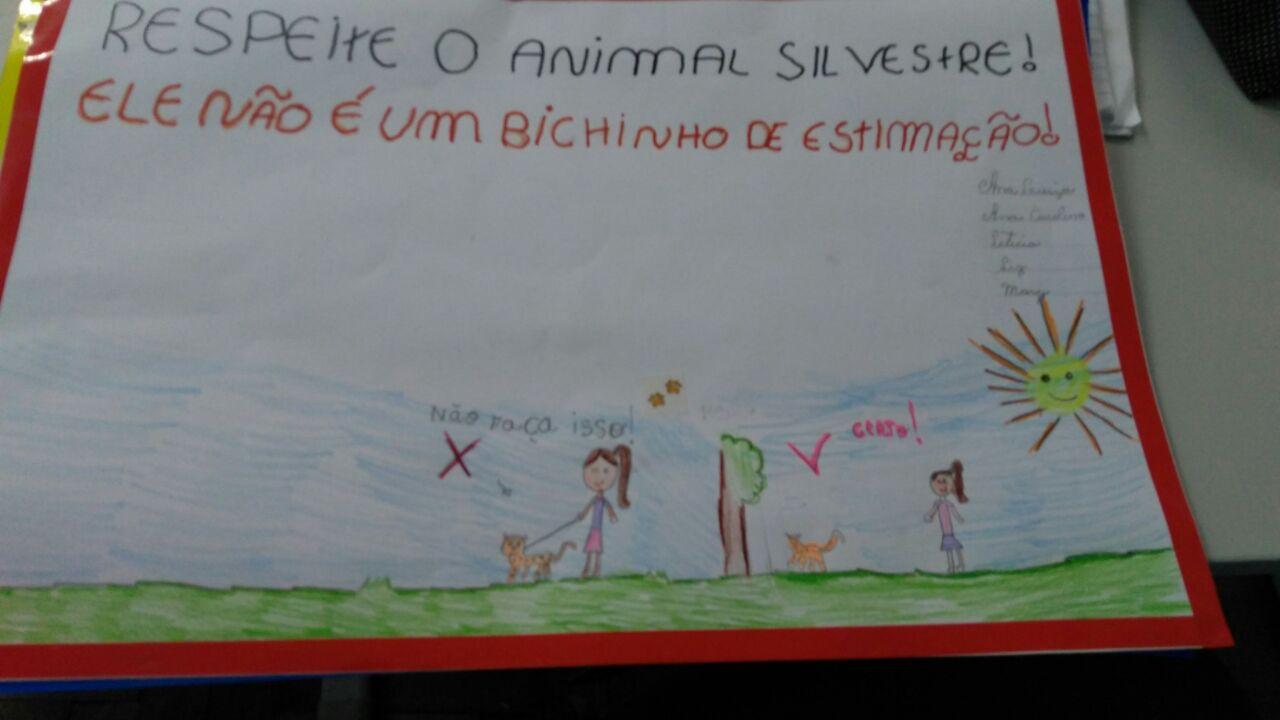 RESPEITE O ANIMAL SILVESTRE!
ELE NÃO É UM BICHINHO DE ESTIMAÇÃO!
Ana Luiza
Ana Carolina
Letícia
Não faça isso!
CERTO!